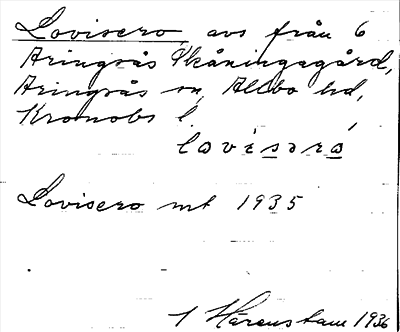 Lovisero avs från 6
Aringsås Skåningagård,
Aringsås sn, Allbo hd,
Kronobs l.
lovisəró
Lovisero mt 1935
1 Härenstam 1936